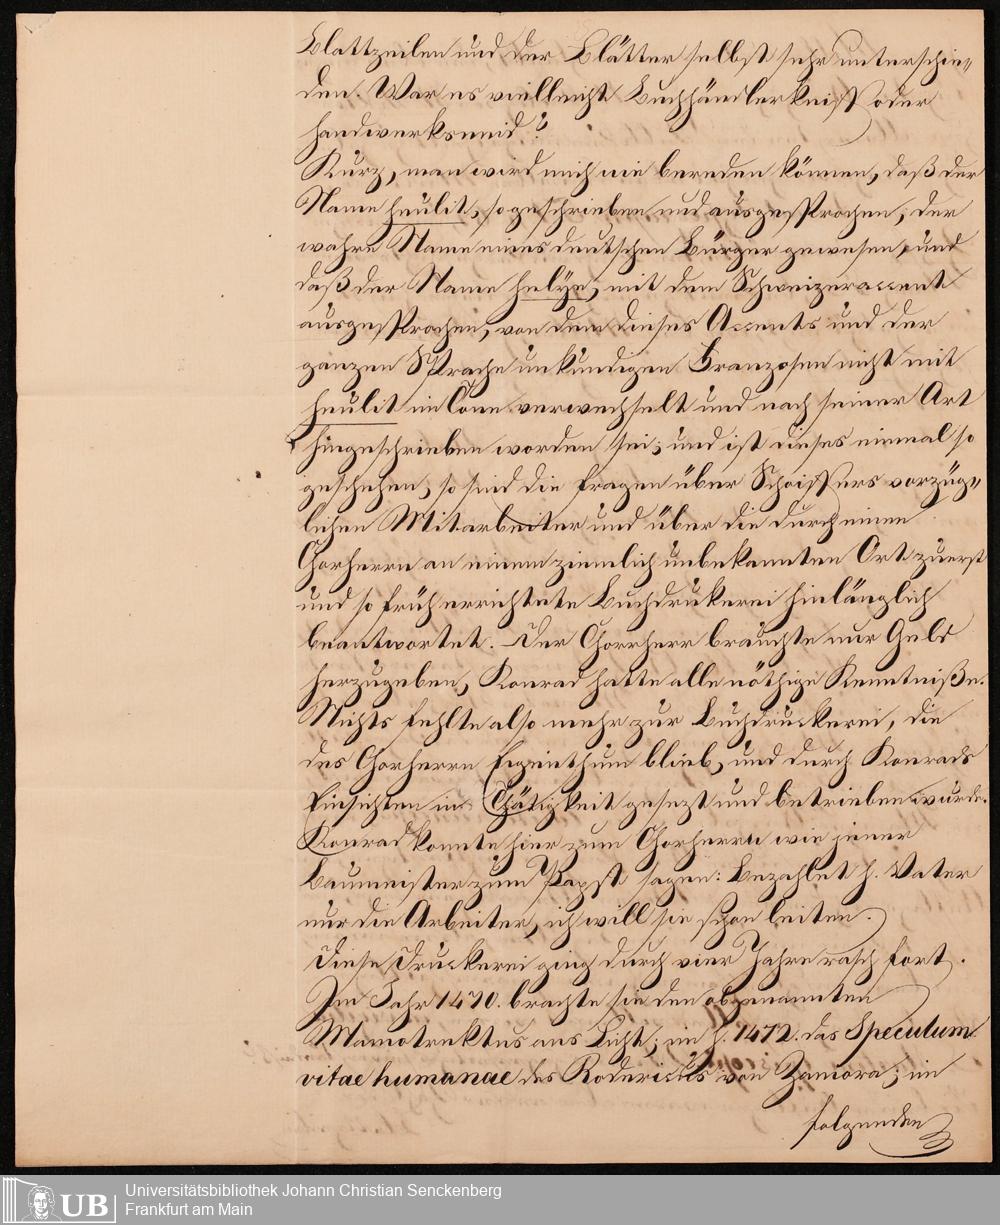 Blattzeilen und der Blätter selbst sehr unterschie-
den. War es vielleicht Buchhändlerkniff oder
Handwerksneid?
Kurz, man wird mich nie bereden können, daß der
Name Heulit, so geschrieben und ausgesprochen, der
wahre Name eines deutschen Bürger gewesen, und
daß der Name Helye, mit dem Schweizeraccent
ausgesprochen, von dem dieses Accents und der
ganzen Sprache unkundigen Franzosen nicht mit
Heulit im Tone verwechselt und nach seiner Art
hingeschrieben worden sei; und ist dieses einmal so
geschehen, so sind die Fragen über Schoiffers vorzüg-
lichen Mitarbeiter und über die durch einen
Chorherrn an einem ziemlich unbekannten Ort zuerst
und so früh errichtete Buchdrukerei hinlänglich
beantwortet. Der Chorherr brauchte nur Geld
herzugeben, Konrad hatte alle nöthige Kenntniße.
Nichts fehlte also mehr zur Buchdruckerei, die
des Chorherrn Eigenthum blieb, und durch Konrads
Einsichten in Thätigkeit gesezt und betrieben wurde.
Konrad konnte hier zum Chorherrn wie jener
Baumeister zum Papst sagen: Bezahlet h. Vater
nur die Arbeiter, ich will sie schon leiten.
Diese Druckerei ging durch vier Jahre rasch fort.
Im Jahr 1470. brachte sie den obgenannten
Mamotrektus ans Licht; im J. 1472. das Speculum
vitae humanae des Rodericus von Zamora; im
folgenden
Universitätsbibliothek Johann Christian Senckenberg
Frankfurt am Main
UB